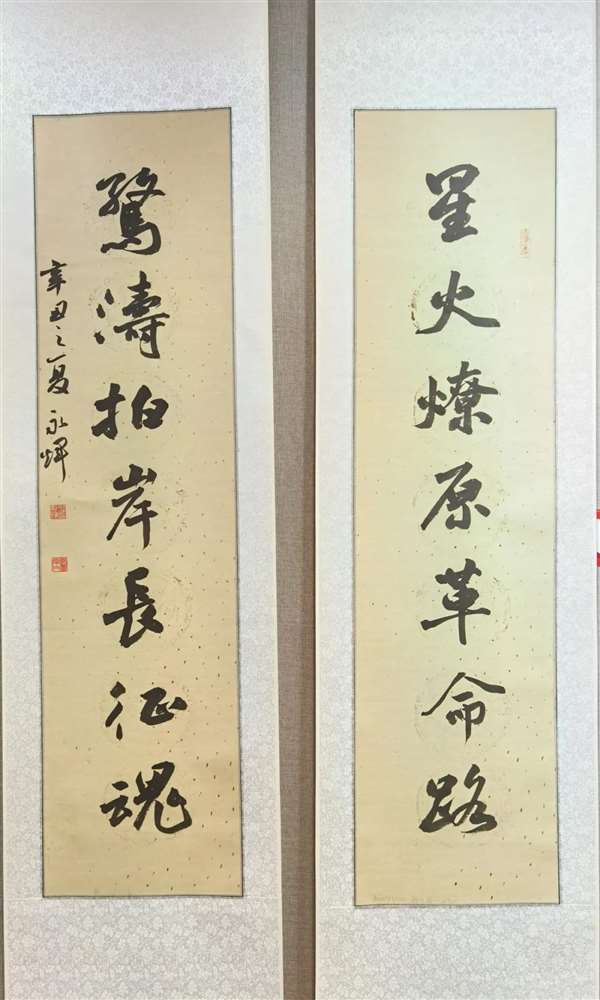 星火燎原革命路
驚濤拍岸長征魂
辛丑之夏 永輝